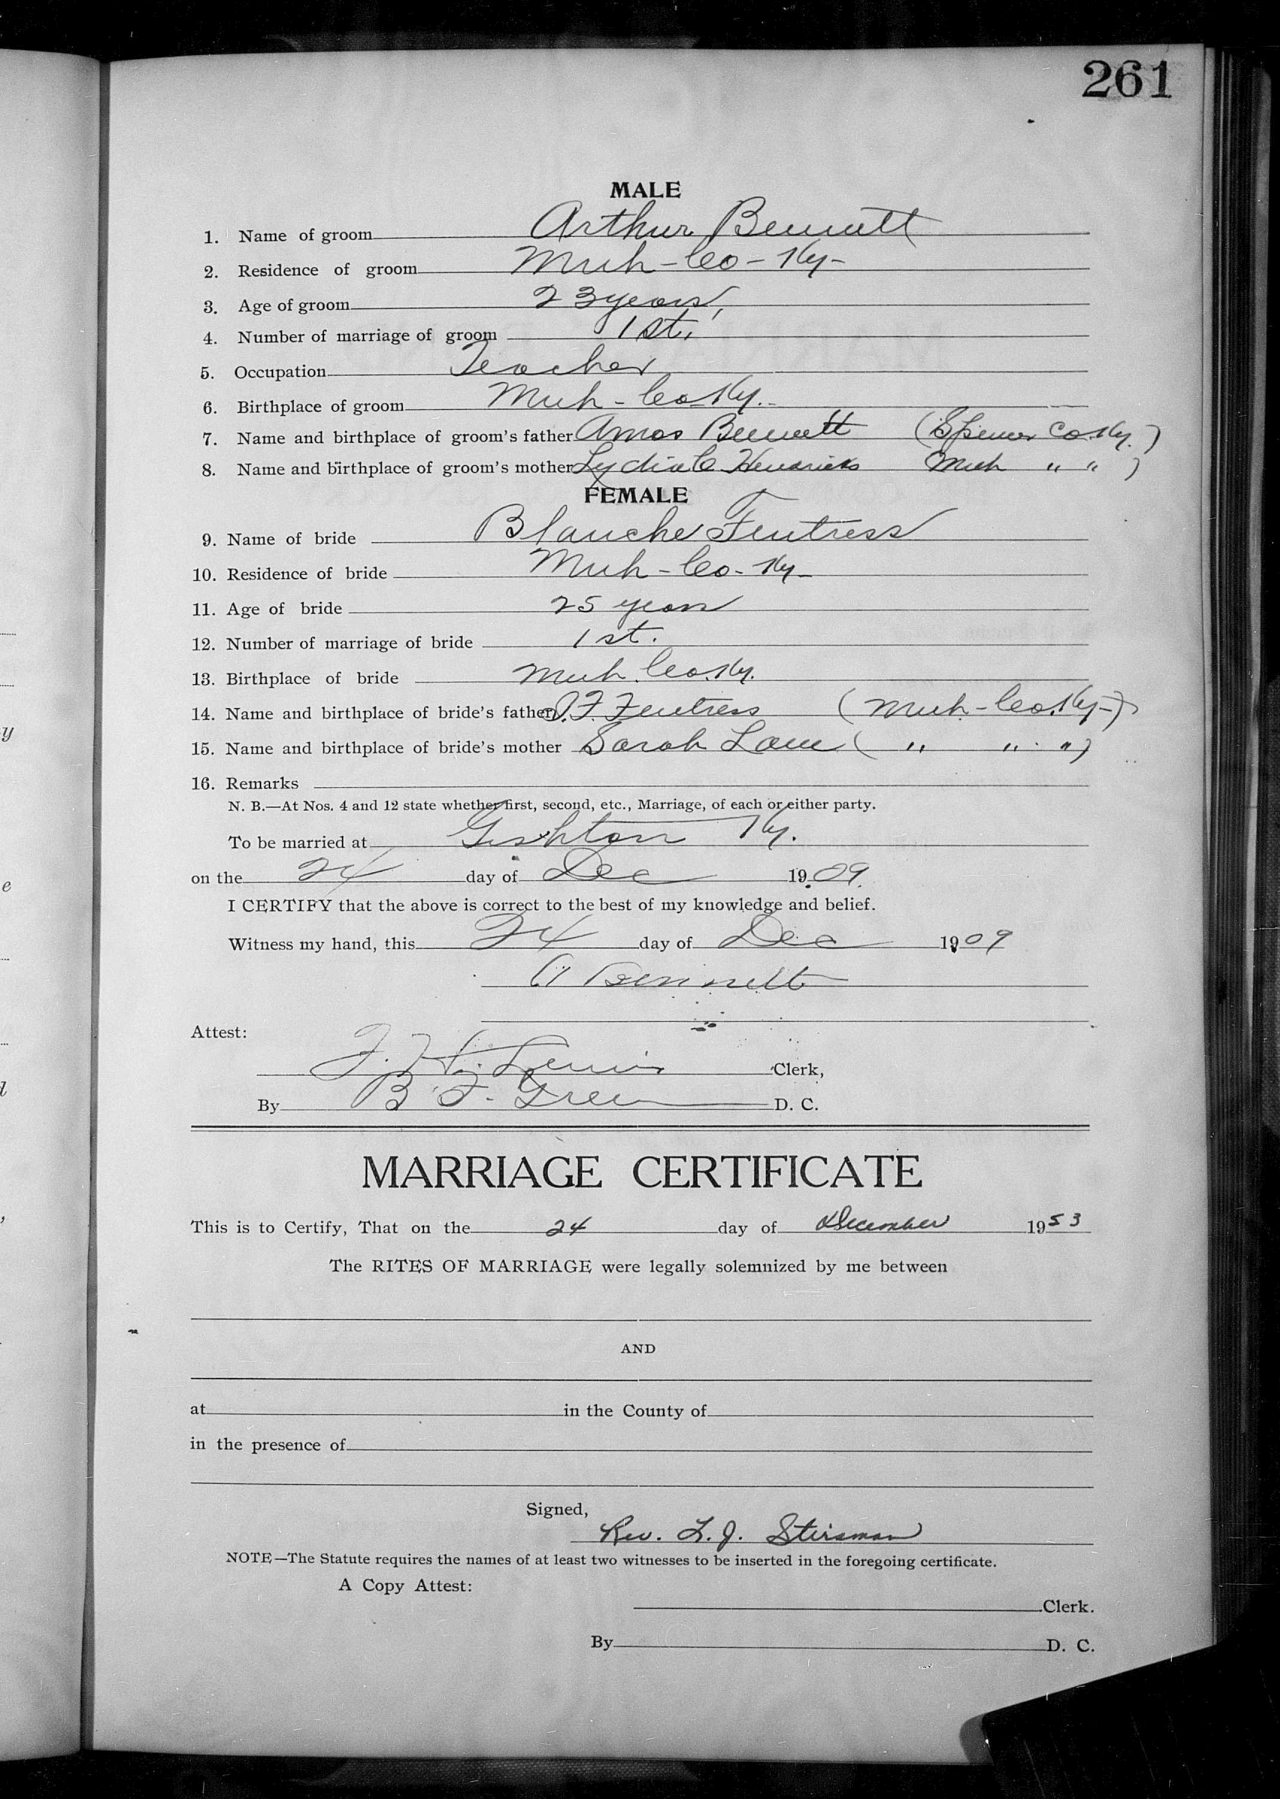 261
MALE
1. Name of groom Arthur Bennett
2. Residence of groom Muh-Co-Ky-
3. Age of groom 23 years,
4. Number of marriage of groom 1st.
5. Occupation Teacher
6. Birthplace of groom Muh-Co-Ky.
7. Name and birthplace of groom's father Amos Bennett (Spencer Co. Ky.)
8. Name and birthplace of groom's mother Lydia C Hendricks Muh " " )
FEMALE
9. Name of bride Blanche Fentress
10. Residence of bride Muh-Co-Ky-
11. Age of bride 25 years
12. Number of marriage of bride 1st.
13. Birthplace of bride Muh. Co. Ky.
14. Name and birthplace of bride's father F. Fentress (Muh-Co. Ky-)
15. Name and birthplace of bride's mother Sarah ( " " " )
16. Remarks
N. B.—At Nos. 4 and 12 state whether first, second, etc., Marriage, of each or either party.
To be married at Gishton Ky.
on the 24 day of Dec 1909.
I CERTIFY that the above is correct to the best of my knowledge and belief.
Witness my hand, this 24 day of Dec 1909
A Bennett
Attest:
Clerk,
By B. F. Green D. C.
MARRIAGE CERTIFICATE
This is to Certify, That on the 24 day of December 1953
The RITES OF MARRIAGE were legally solemnized by me between
AND
at in the County of
in the presence of
Signed,
Rev. L. J. Stirsman
NOTE—The Statute requires the names of at least two witnesses to be inserted in the foregoing certificate.
A Copy Attest:
Clerk.
By D. C.